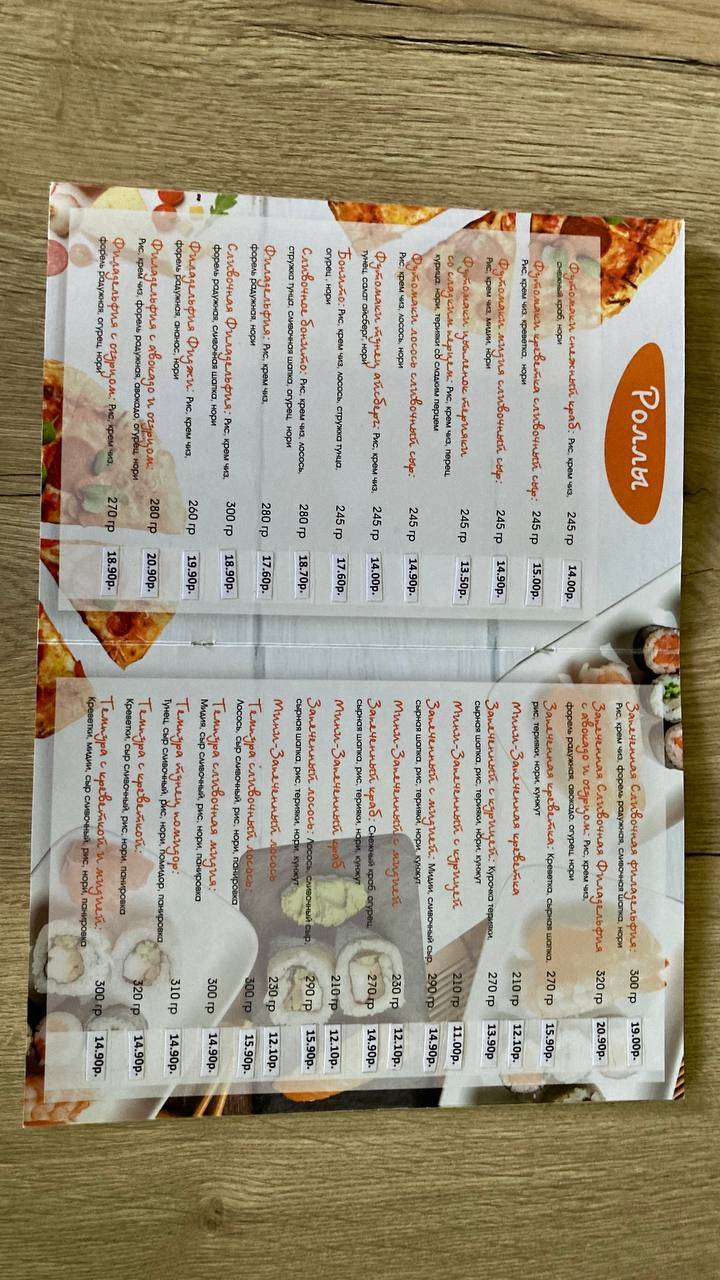 Роллы
Футомаки снежный краб: Рис, крем чиз, 245 гр 14.00р.
снежный краб, нори
Футомаки креветка сливочный сыр: 245 гр 15.00р.
Рис, крем чиз, креветка, нори
Футомаки мидия сливочный сыр: 245 гр 14.90р.
Рис, крем чиз, мидии, нори
Футомаки цыпленок терияки
со сладким перцем: Рис, крем чиз, перец, 245 гр 13.50р.
курица, нори, терияки со сладким перцем
Футомаки лосось сливочный сыр: 245 гр 14.90р.
Рис, крем чиз, лосось, нори
Футомаки тунец айсберг: Рис, крем чиз, 245 гр 14.00р.
тунец, салат айсберг, нори
Бонито: Рис, крем чиз, лосось, стружка тунца, 245 гр 17.60р.
огурец, нори
Сливочное бонито: Рис, крем чиз, лосось, 280 гр 18.70р.
стружка тунца, сливочная шапка, огурец, нори
Филадельфия: Рис, крем чиз, 280 гр 17.60р.
форель радужная, нори
Сливочная Филадельфия: Рис, крем чиз, 300 гр 18.90р.
форель радужная, сливочная шапка, нори
Филадельфия Фиджи: Рис, крем чиз, 260 гр 19.90р.
форель радужная, ананас, нори
Филадельфия с авокадо и огурцом: 280 гр 20.90р.
Рис, крем чиз, форель радужная, авокадо, огурец, нори
Филадельфия с огурцом: Рис, крем чиз, 270 гр 18.90р.
форель радужная, огурец, нори
Запеченная Сливочная филадельфия: 300 гр 19.00р.
Рис, крем чиз, форель радужная, сливочная шапка, нори
Запеченная Сливочная Филадельфия
с авокадо и огурцом: Рис, крем чиз, 320 гр 20.90р.
форель радужная, авокадо, огурец, нори
Запеченная креветка: Креветка, сырная шапка, 270 гр 15.90р.
рис, терияки, нори, кунжут
Мини-Запеченная креветка 210 гр 12.10р.
Запеченный с курицей: Курочка терияки, 270 гр 13.90р
сырная шапка, рис, терияки, нори, кунжут
Мини-Запеченный с курицей 210 гр 11.00р.
Запеченный с мидией: Мидии, сливочный сыр, 290 гр 14.90р.
сырная шапка, рис, терияки, нори, кунжут
Мини-Запеченный с мидией 230 гр 12.10р.
Запеченный краб: Снежный краб, огурец, 270 гр 14.90р.
сырная шапка, рис, терияки, нори, кунжут
Мини-Запеченный краб 210 гр 12.10р.
Запеченный лосось: Лосось, сливочный сыр, 290 гр 15.90р.
сырная шапка, рис, терияки, нори, кунжут
Мини-Запеченный лосось 230 гр 12.10р.
Темпура сливочный лосось: 300 гр 15.90р.
Лосось, сыр сливочный, рис, нори, панировка
Темпура сливочная мидия: 300 гр 14.90р.
Мидия, сыр сливочный, рис, нори, панировка
Темпура тунец помидор: 310 гр 14.90р.
Тунец, сыр сливочный, рис, нори, помидор, панировка
Темпура с креветкой: 320 гр 14.90р.
Креветки, сыр сливочный, рис, нори, панировка
Темпура с креветкой и мидией: 300 гр 14.90р.
Креветки, мидии, сыр сливочный, рис, нори, панировка